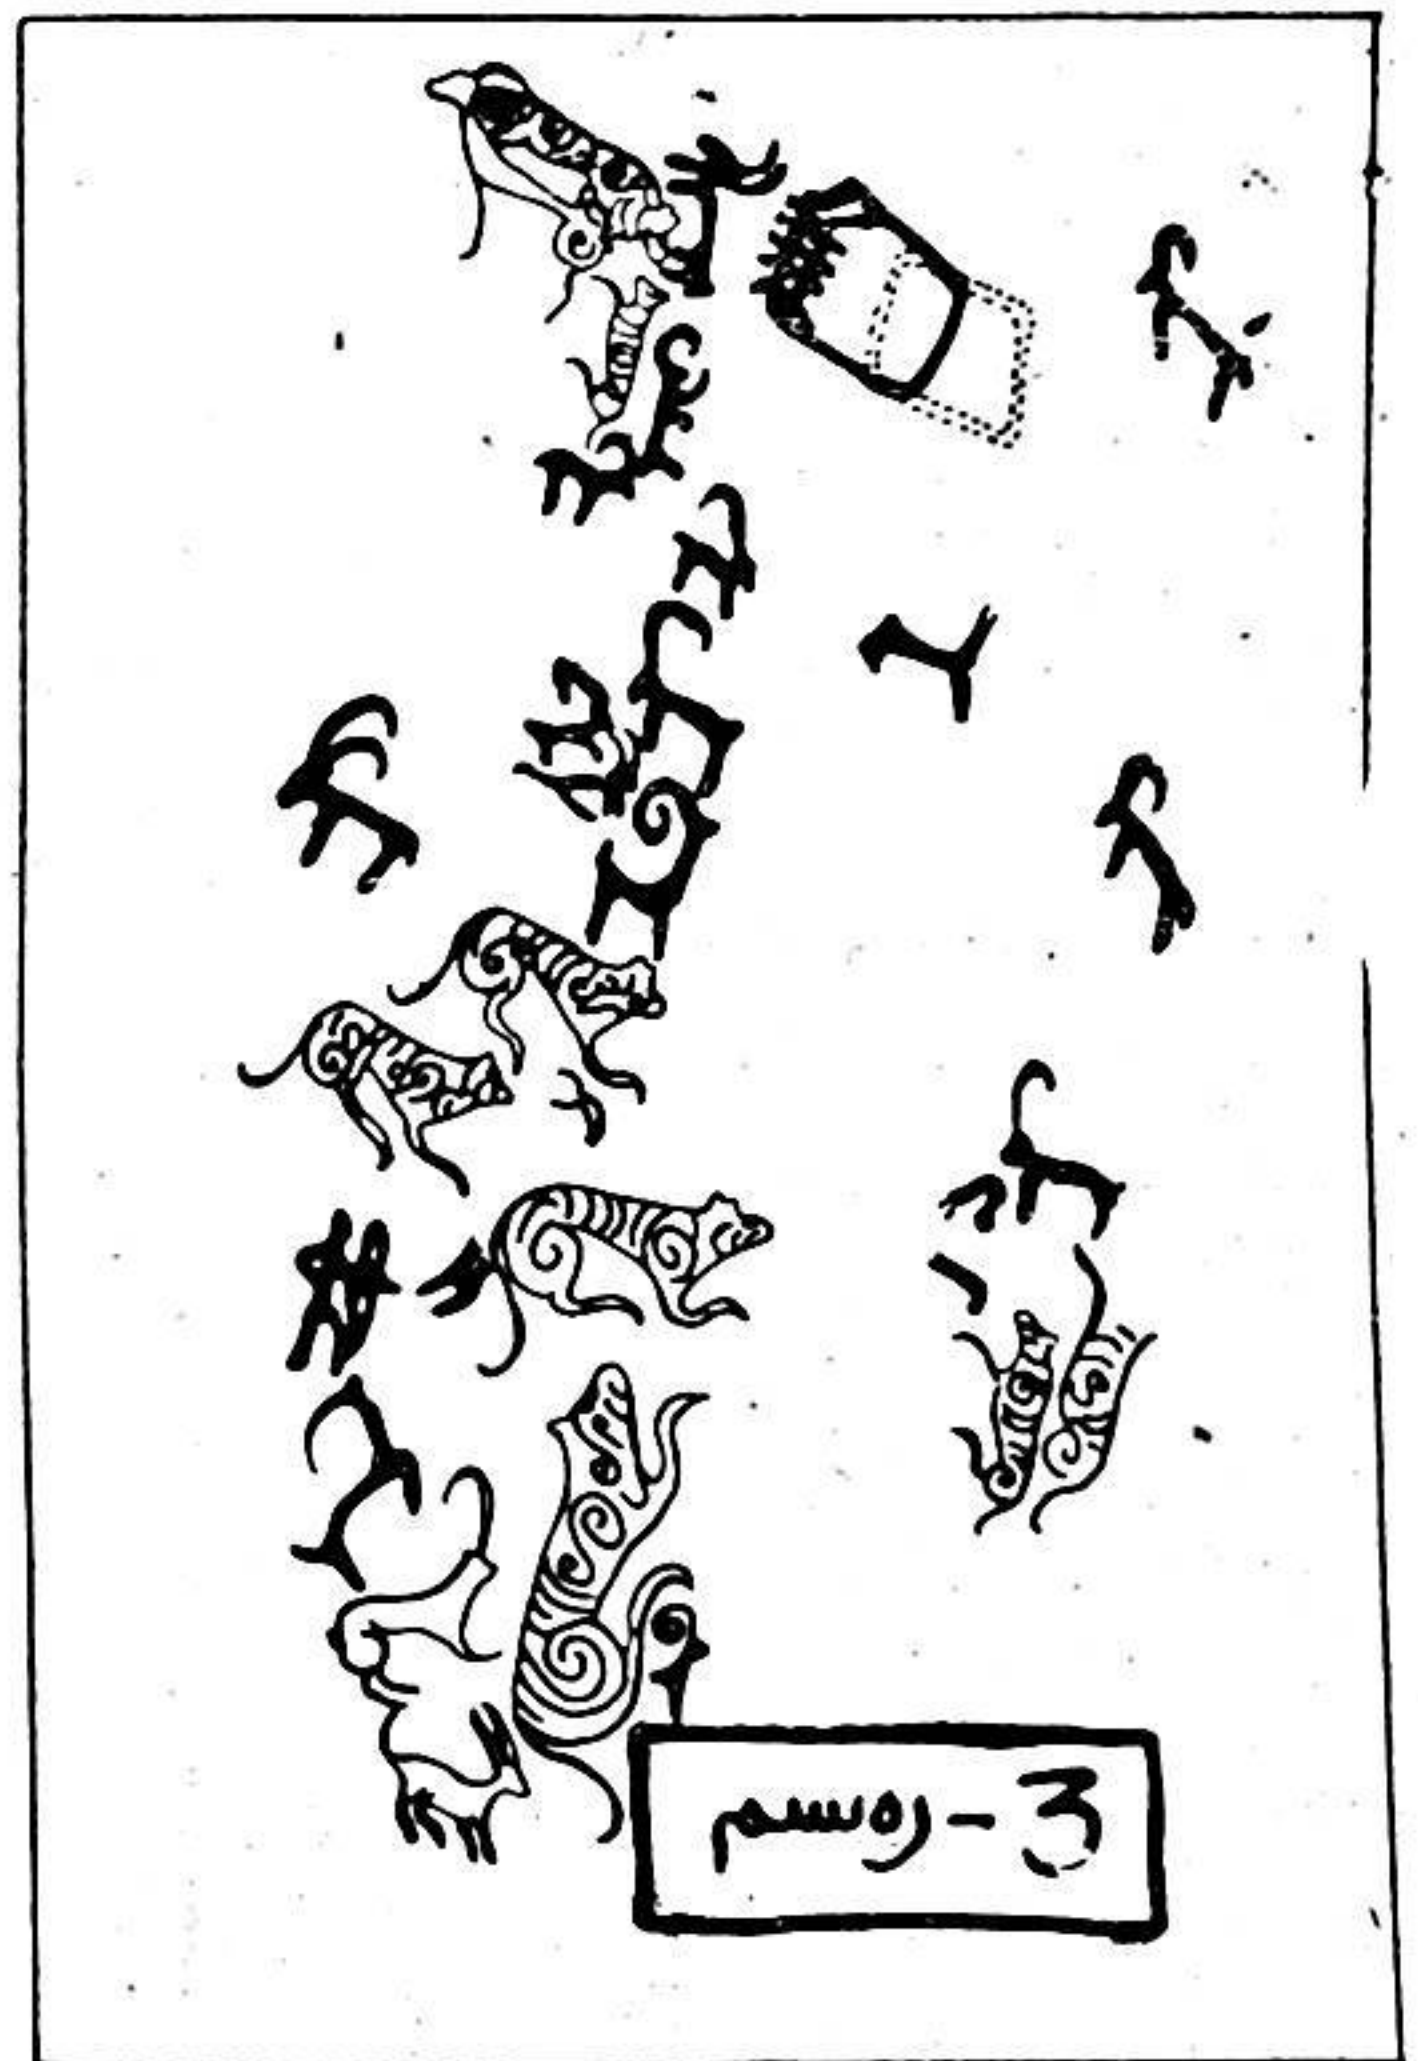 3-رەسىم